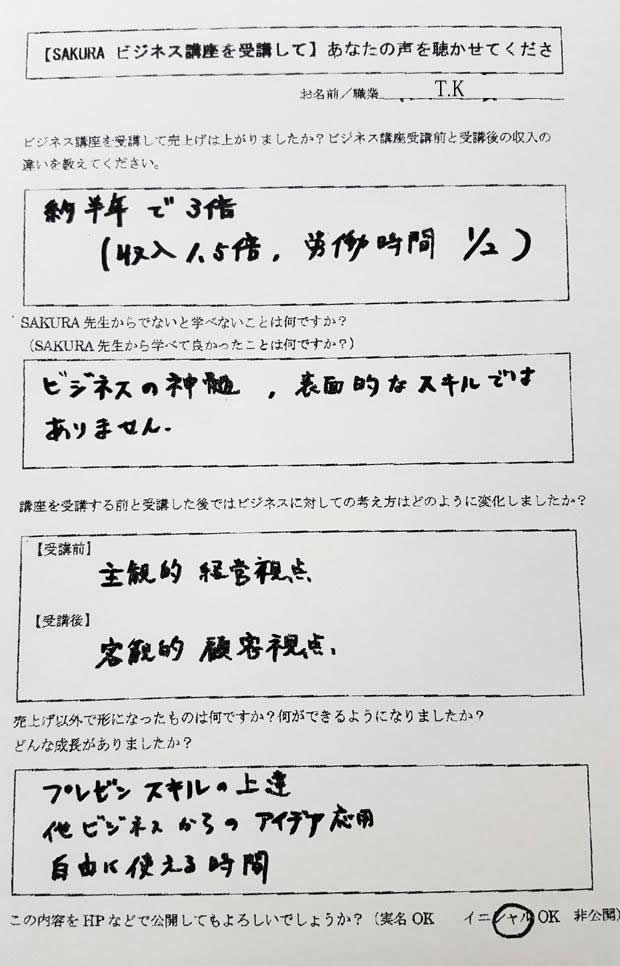 【SAKURA ビジネス講座を受講して】あなたの声を聴かせてくださ
お名前／職業 T.K
ビジネス講座を受講して売上げは上がりましたか？ビジネス講座受講前と受講後の収入の
違いを教えてください。
約半年で3倍
(収入1.5倍, 労働時間 1/2)
SAKURA 先生からでないと学べないことは何ですか？
（SAKURA 先生から学べて良かったことは何ですか？）
ビジネスの神髄, 表面的なスキルでは
ありません.
講座を受講する前と受講した後ではビジネスに対しての考え方はどのように変化しましたか？
【受講前】
主観的 経営視点
【受講後】
客観的 顧客視点.
売上げ以外で形になったものは何ですか？何ができるようになりましたか？
どんな成長がありましたか？
プレゼンスキルの上達
他ビジネスからのアイデア応用
自由に使える時間
この内容を HP などで公開してもよろしいでしょうか？（実名 OK イニシャル OK 非公開)